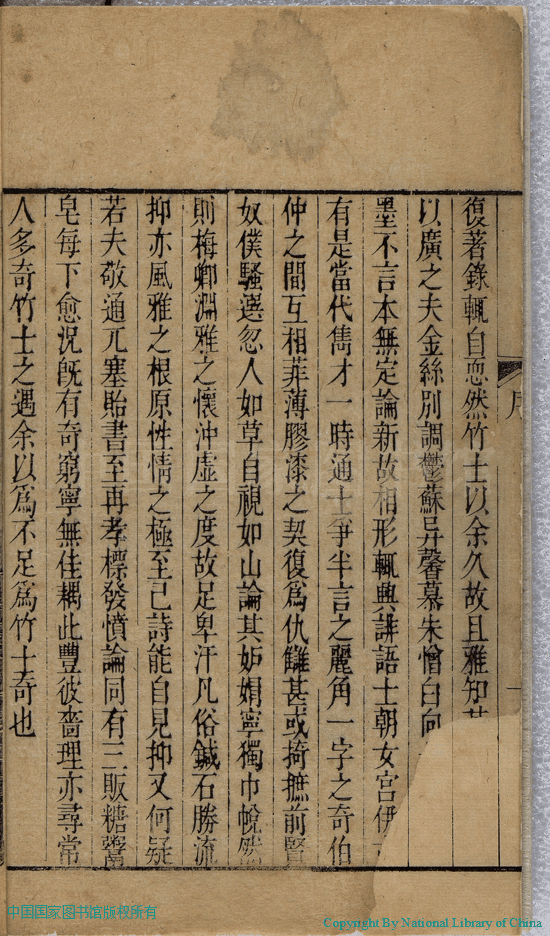 復著錄輒自恧然竹士以余久故且雅知其
以廣之夫金絲別調鬱蘇异馨慕朱憎白向
墨不言本無定論新故相形輒興誹語士朝女宮伊
有是當代雋才一時通士爭半言之麗角一字之奇伯
仲之間互相菲薄膠漆之契復爲仇讎甚或掎摭前賢
奴僕騷選忽人如草自視如山論其妒娼寧獨巾幗然
則梅卿淵雅之懷沖虛之度故足卑汗凡俗鍼石勝流
抑亦風雅之根原性情之極至己詩能自見抑又何疑
若夫敬通兀塞貽書至再孝標發憤論同有三販糖鬻
皂每下愈況旣有奇窮寧無佳耦此豐彼嗇理亦尋常
人多奇竹士之遇余以爲不足爲竹士奇也
序
一
中国国家图书馆版权所有
Copyright By National Library of China